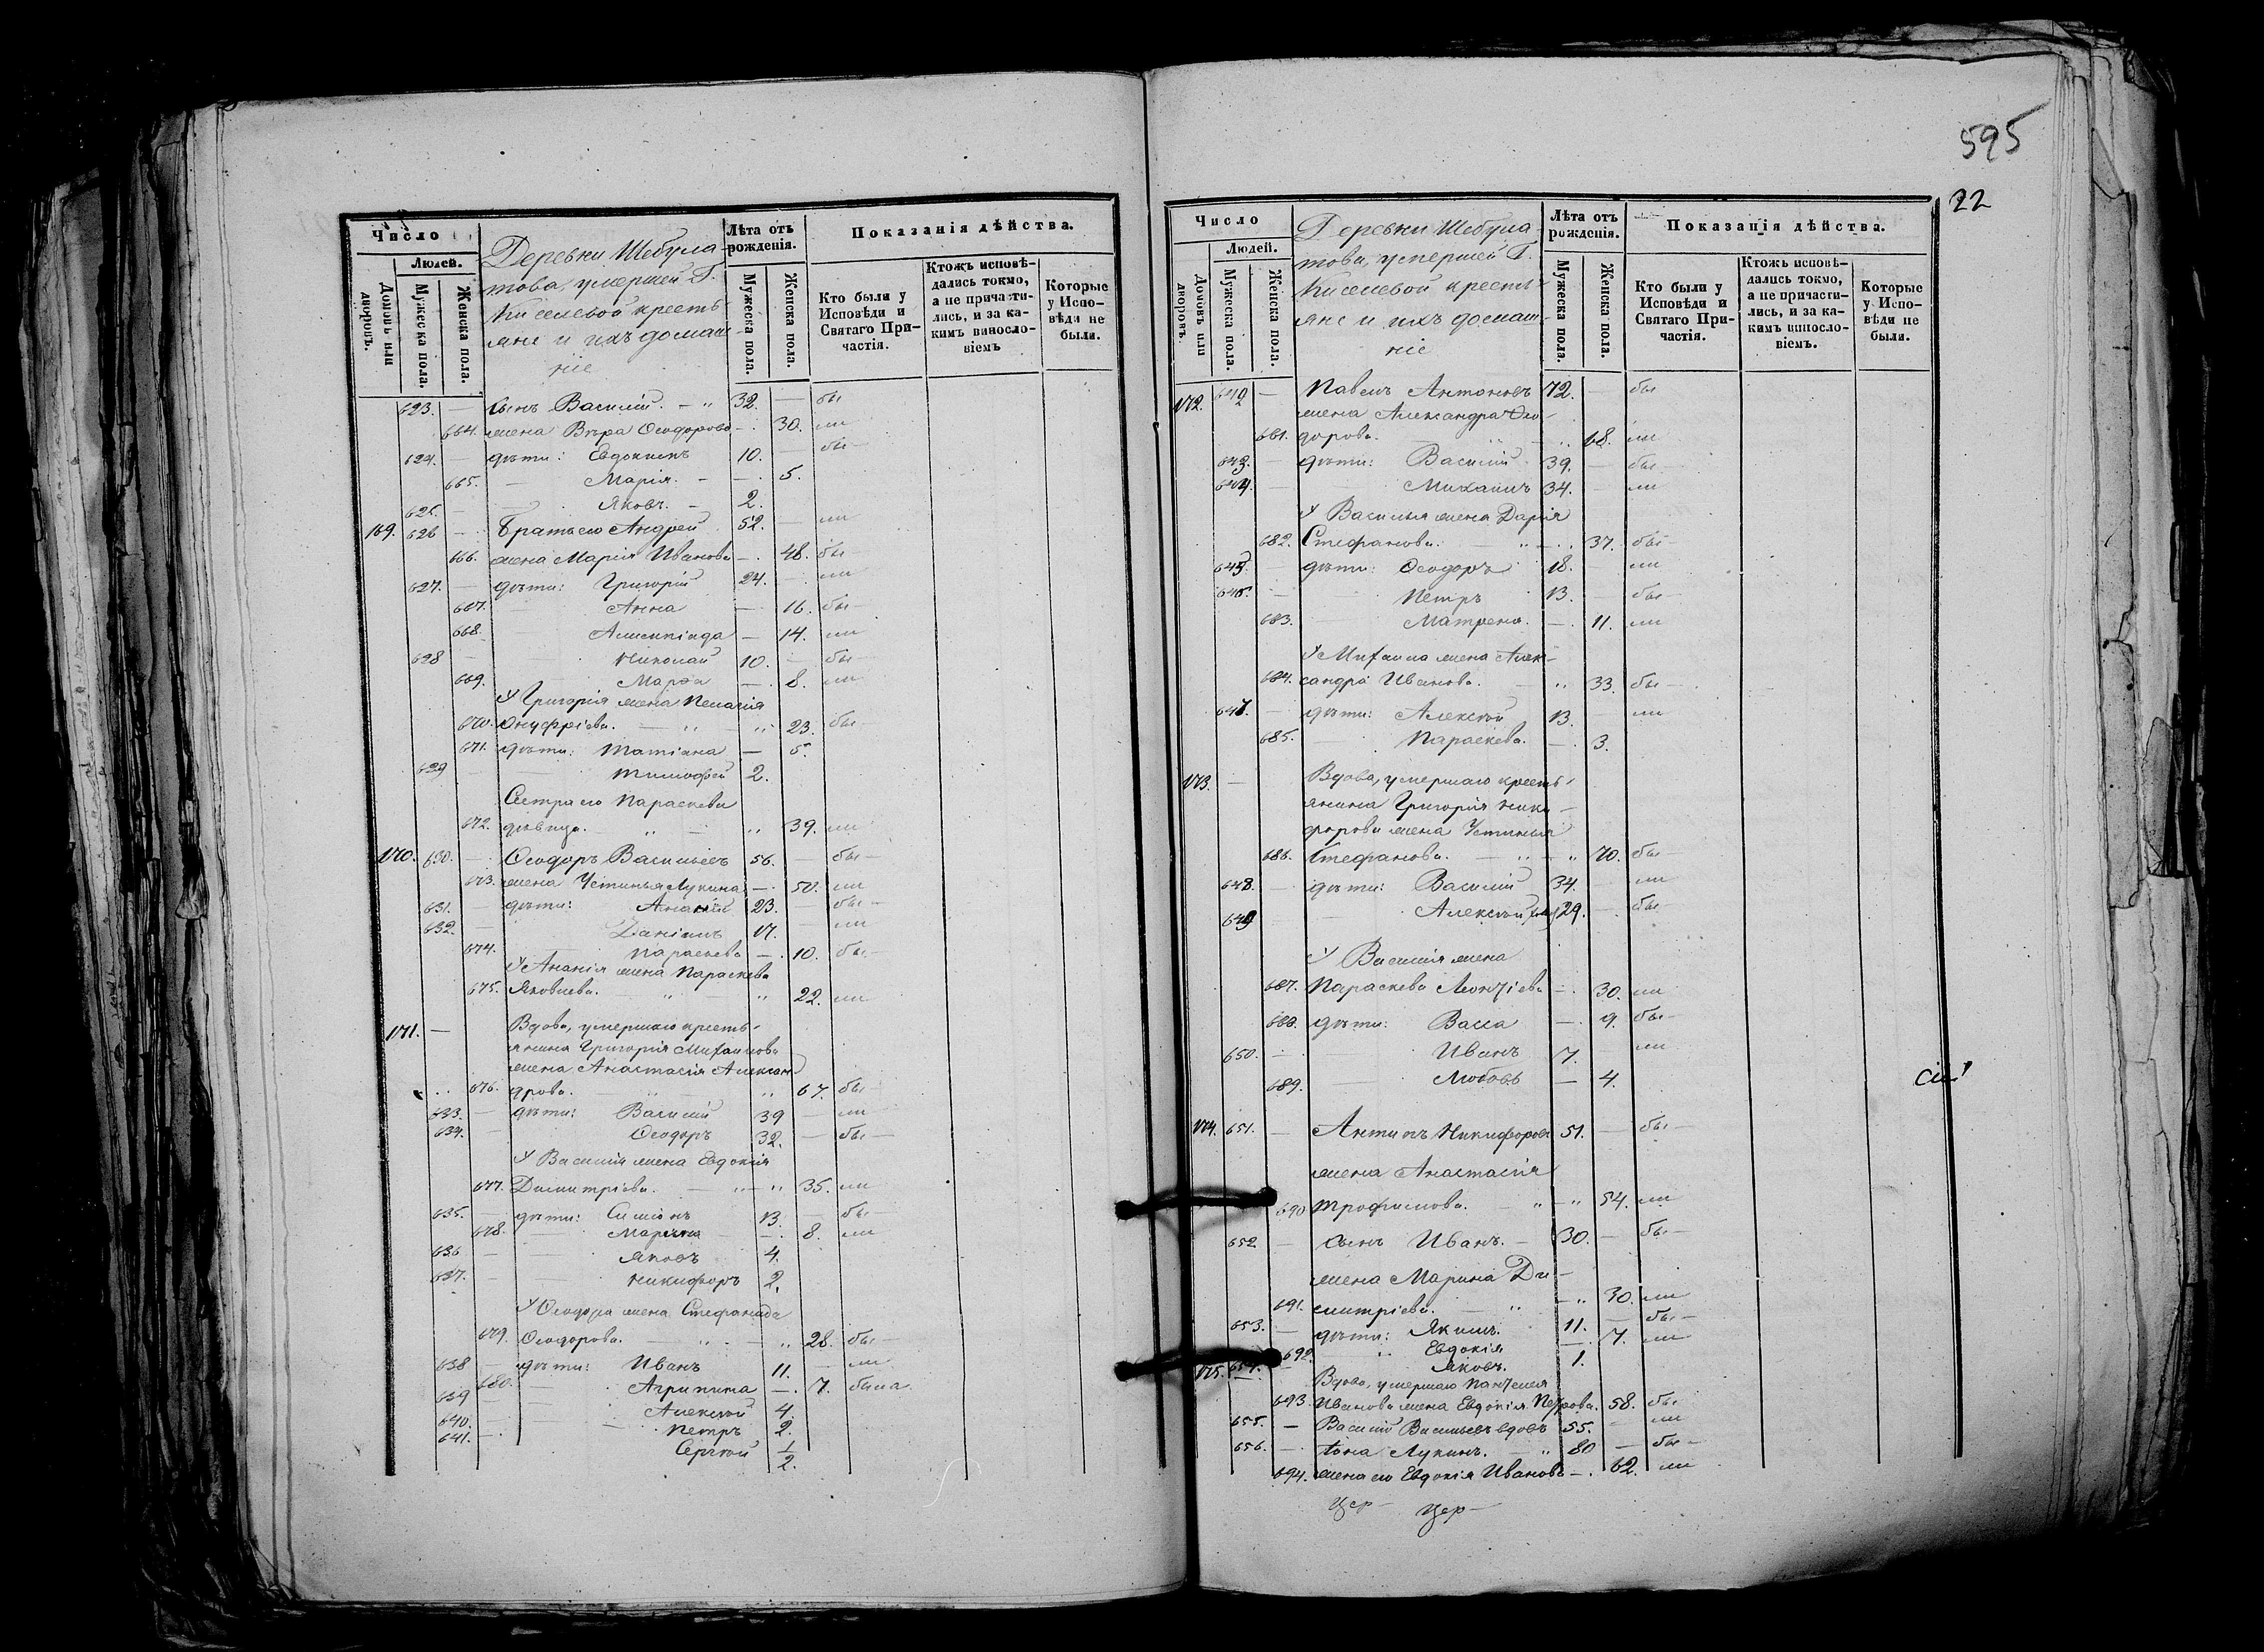 595
22
Число
Людей.
Домовъ или дворовъ.
Мужеска пола.
Женска пола.
Деревни Шебула-
това, умершей Г.
Киселевой кресть-
яне и ихъ домаш-
ніе
Лѣта отъ рожденія.
Мужеска пола.
Женска пола.
Показанія дѣйства.
Кто были у Исповѣди и Святаго Причастія.
Ктожъ исповѣдались токмо, а не причастились, и за какимъ винословіемъ
Которые у Исповѣди не были.
623. — сынъ Василій. — „ 32. — бы
664. жена Вѣра Ѳеодорова — . 30. ли
624. — дѣти: Евдокимъ 10. — бы—
665. — Марія. — — . 5.
625. — Яковъ. — 2.
169. 626 — Братъ его Андрей 52. — ли
666. жена Марія Иванова — . 48. бы—
627. — дѣти: Григорій 24. — ли
667. Анна — 16. бы—
668. Асклипіада — 14. ли
628 — Николай 10. — бы—
669. Марѳа — . 8. ли
У Григорія жена Пелагія
670. Онуфріева. — „ — „ 23. бы—
671. дѣти: Татіана — 5.
629 — Тимофей 2.
Сестра его Параскева
672. дѣвица. „ — „ 39. ли
170. 630. — Ѳеодоръ Васильевъ 56. — бы—
673. жена Устинья Лукина — . 50. ли
631. — дѣти: Ананій 23. бы—
632. — Даніилъ 17. — ли
674. Параскева — . 10. бы—
У Ананія жена Параскева
675. Яковлева. „ — „ 22. ли
171. — Вдова, умершаго кресть-
янина Григорія Михаилова
жена Анастасія Алексан-
676. дрова. — „ — „ 67. бы
633. — дѣти: Василій 39 — ли
634. — Ѳеодоръ 32. — бы—
У Василія жена Евдокія
677. Димитріева. — „ — „ 35. ли
635. — дѣти: Симіонъ 13. — бы—
678. — Марина — . 8. ли
636 — Яковъ 4.
637. — Никифоръ 2.
У Ѳеодора жена Стефанида
679. Ѳеодорова. — „ — „ 28. бы—
638 — дѣти: Иванъ 11. — ли
680. — Агрипина — . 7. была.
639 — Алексѣй 4.
640. — Петръ 2.
641. — Сергѣй 1/2.
Число
Людей.
Домовъ или дворовъ.
Мужеска пола.
Женска пола.
Деревни Шебула-
това, умершей Г.
Киселевой кресть-
яне и ихъ домаш-
ніе
Лѣта отъ рожденія.
Мужеска пола.
Женска пола.
Показанія дѣйства.
Кто были у Исповѣди и Святаго Причастія.
Ктожъ исповѣдались токмо, а не причастились, и за какимъ винословіемъ.
Которые у Исповѣди не были.
172. 642 — Павелъ Антоновъ 72. — бы
жена Александра Ѳео-
681. дорова. — „ — „ 68. ли
643. — дѣти: Василій 39. — бы—
644. — Михаилъ 34. — ли
У Василья жена Дарія
682. Стефанова. — „ — „ 37. бы—
645. — дѣти: Ѳеодоръ 18. — ли
646. — Петръ 13. — бы—
683. — Матрена. — . 11. ли
У Михаила жена Алек-
684. сандра Иванова. — „ 33. бы—
647. — дѣти: Алексѣй 13. — ли
685. Параскева. — . 3.
173. — Вдова, умершаго кресть-
янина Григорія Ники-
форова жена Устинья
686. Стефанова. — „ — „ 70. бы—
648. — дѣти: Василій 34. — ли
649 — Алексѣй 29. — бы—
У Василія жена
687. Параскева Леонтіева — . 30. ли
688. дѣти: Васса — . 9. бы—
650. — Иванъ 7. — ли
689. — Любовь — 4.
174. 651. — Антипъ Никифоровъ 51. — бы—
жена Анастасія
690 Трофимова. — „ — „ 54. ли
652 — сынъ Иванъ. — 30. — бы—
жена Марина Ди-
691. митріева. — „ — „ 30. ли
653. — дѣти: Якимъ. 11. — бы—
692. — „ Евдокія — . 7. ли
654. — Яковъ. 1.
175. Вдова, умершаго Пантелея
693. Иванова жена Евдокія Петрова. 58. бы
655. — Василій Васильевъ вдовъ 55. — ли
656. — Іона Лукинъ. — „ 80 — бы—
694. жена его Евдокія Иванова — . 62. ли
Цер— Цер—